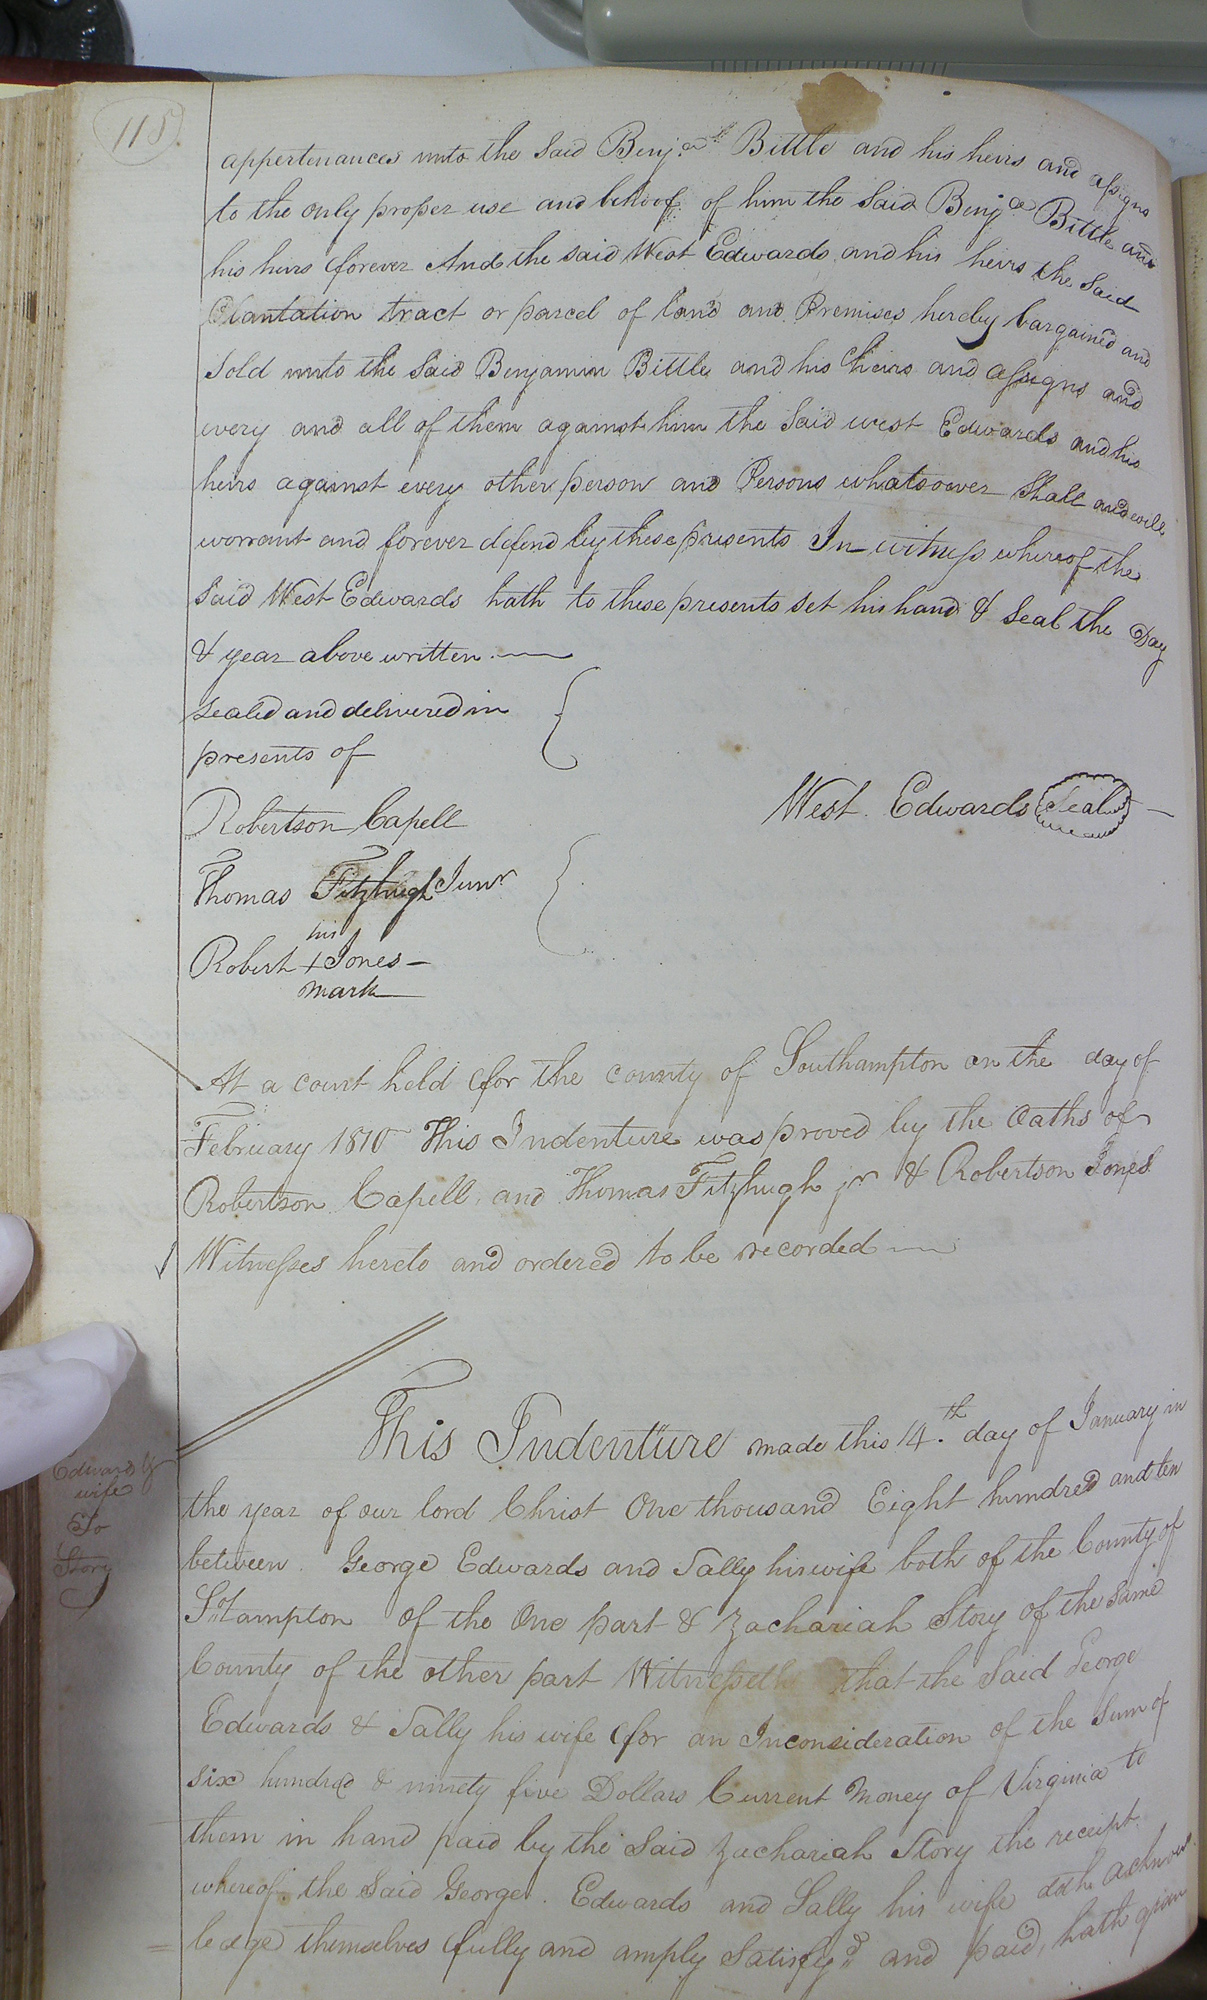 118
appertenances unto the Said Benja. Bittle and his heirs and assigns
to the only proper use and behoof of him the Said Benja Bittle and
his heirs forever And the said West Edwards and his heirs the Said
Plantation tract or parcel of land and Premises hereby bargained and
Sold unto the Said Benjamin Bittle and his heirs and assigns and
every and all of them against him the Said west Edwards and his
heirs against every other person and Persons whatsoever Shall and will
warrant and forever defend by these presents In witness whereof the
Said West Edwards hath to these presents set his hand & Seal the Day
& year above written.
Sealed and delivered in
presents of
Robertson Capell
West Edwards Seal
Thomas Fitzhugh Junr
his
Robert + Jones
mark
At a court held for the county of Southampton on the day of
February 1810 This Indenture was proved by the Oaths of
Robertson Capell and Thomas Fitzhugh jr & Robertson Jones
Witnesses hereto and ordered to be recorded
This Indenture made this 14th day of January in
Edwards &
wife
To
Story
the year of our lord Christ One thousand Eight hundred and ten
between George Edwards and Sally his wife both of the County of
Sotampton of the One part & Zachariah Story of the same
County of the other part Witnesseth that the Said George
Edwards & Sally his wife for an Inconsideration of the Sum of
six hundred & ninety five Dollars Current Money of Virginia to
them in hand paid by the Said Zachariah Story the receipt
whereof the Said George Edwards and Sally his wife doth acknow
ledge themselves fully and amply Satisfyd and paid, hath